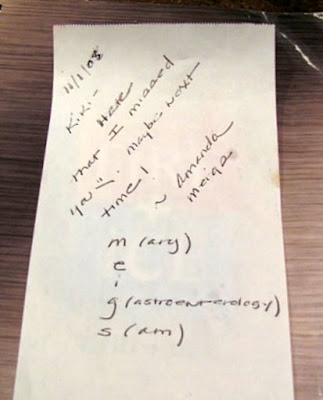 11/1/08
Kiki-
Hate
that I missed
you :). Maybe next
time!
~ Amanda
Meigs
m (ary)
e
i
g (astroenterology)
s (am)